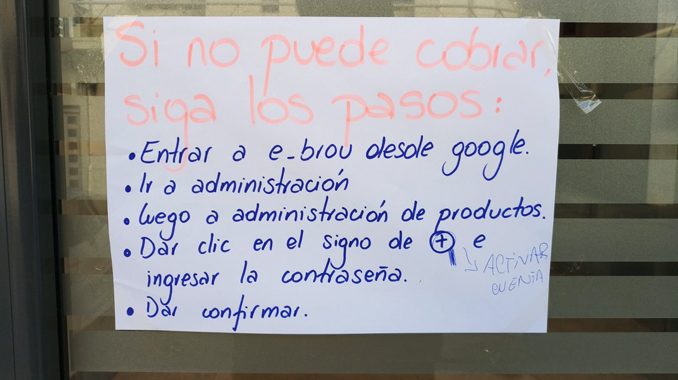 Si no puede cobrar,
siga los pasos:
• Entrar a e-brou desde google.
• Ir a administración
• Luego a administración de productos.
• Dar clic en el signo de + e
ingresar la contraseña.
ACTIVAR
CUENTA
• Dar confirmar.